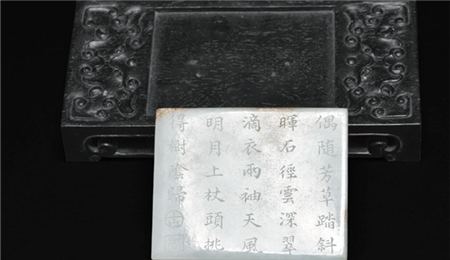 偶隨芳草踏斜
暉石徑雲深翠
滴衣兩袖天風
明月上杖頭挑
得樹陰歸